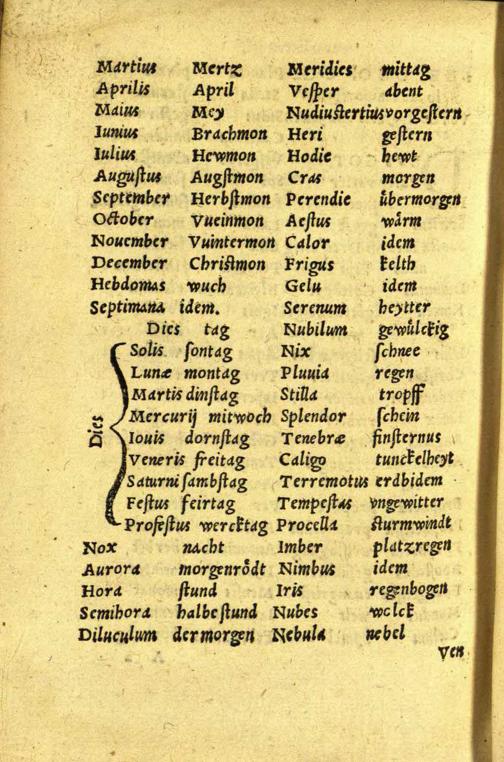 Martius Mertz
Aprilis April
Maius Mey
Iunius Brachmon
Iulius Hewmon
Augustus Augstmon
September Herbstmon
October Vueinmon
Nouember Vuintermon
December Christmon
Hebdomas wuch
Septimana idem.
Dies tag
Dies
Solis sontag
Lunæ montag
Martis dinstag
Mercurij mitwoch
Iouis dornstag
Veneris freitag
Saturni sambstag
Festus feirtag
Profestus wercktag
Nox nacht
Aurora morgenrödt
Hora stund
Semihora halbe stund
Diluculum der morgen
Meridies mittag
Vesper abent
Nudiustertius vorgestern
Heri gestern
Hodie hewt
Cras morgen
Perendie übermorgen
Aestus wärm
Calor idem
Frigus kelth
Gelu idem
Serenum heytter
Nubilum gewülckig
Nix schnee
Pluuia regen
Stilla tropff
Splendor schein
Tenebræ finsternus
Caligo tunckelheyt
Terremotus erdbidem
Tempestas vngewitter
Procella sturmwindt
Imber platzregen
Nimbus idem
Iris regenbogen
Nubes wolck
Nebula nebel
Ven